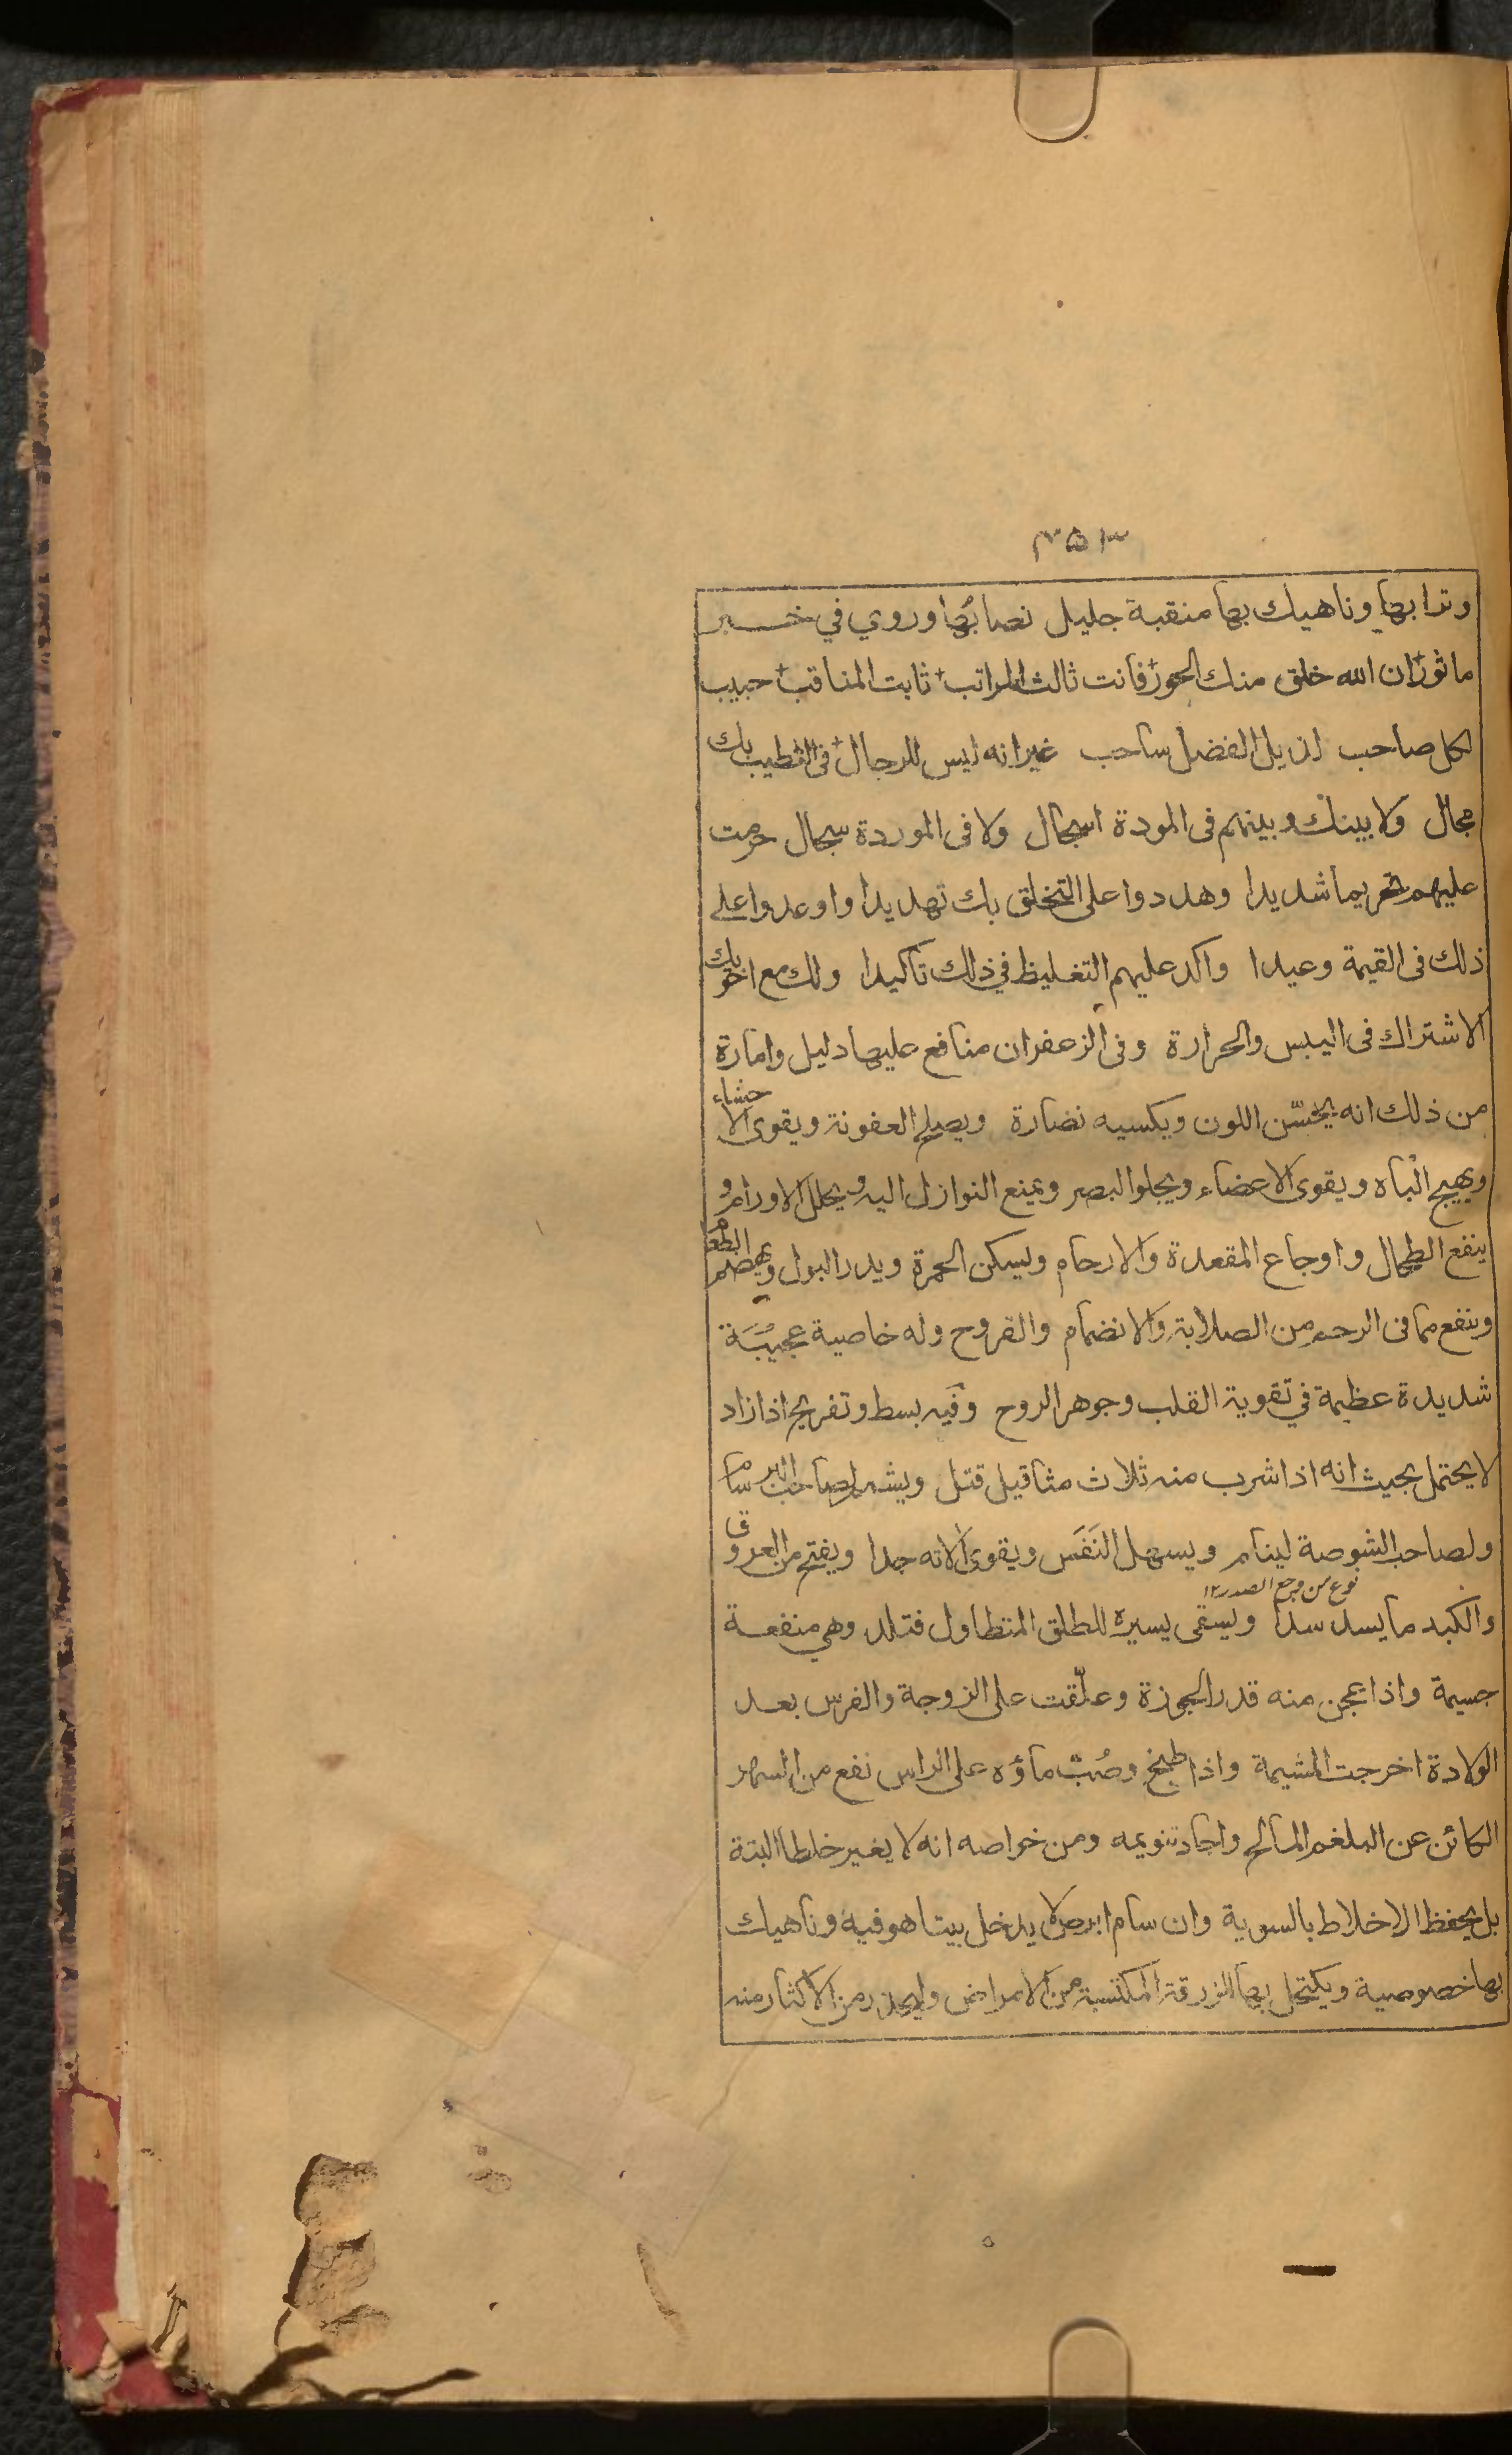 ٣٥٣
وترابها وناهيك بها منقبة جليل نصابُها وروي في خبر
ماثور ان الله خلق منك الحور فانت ثالث المراتب ثابت المناقب حبيب
لكل صاحب لذيل الفضل ساحب غير انه ليس للرجال فى التطيب بك
مجال ولا بينك وبينهم فى المودة اسجال ولا فى الموردة سجال حرمت
عليهم تحريما شديدا وهددوا على التخلق بك تهديدا واوعدوا على
ذلك فى القيمة وعيدا واكد عليهم التغليظ في ذلك تاكيدا ولك مع اخويك
الاشتراك فى اليبس والحرارة وفى الزعفران منافع عليها دليل وامارة
من ذلك انه يحسّن اللون ويكسيه نضارة ويصلح العفونة ويقوى الاحشاء
ويهيج الباه ويقوى الاعضاء ويجلو البصر ويمنع النوازل اليه ويحلل الاورام و
ينفع الطحال واوجاع المقعدة والارحام ويسكن الحمرة ويدر البول ويهضم الطعام
وينفع مما فى الرحم من الصلابة والانضمام والقروح وله خاصية عجيبة
شديدة عظيمة في تقوية القلب وجوهر الروح وفيه بسط وتفريح اذا زاد
لا يحتمل بحيث انه اذا شرب منه ثلاث مثاقيل قتل ويشم لصاحب البرسام
ولصاحب الشوصة لينام ويسهل النَفَس ويقوى الاته جدا ويفتح من العروق
نوع من وجع الصدر ١٢
والكبد ما يسد سدا ويسقى يسيره للطلق المتطاول فتلد وهي منفعة
جسيمة واذا عجن منه قدر الجوزة وعلّقت على الزوجة والفرس بعد
الولادة اخرجت المشيمة واذا طبخ وصُبّ ماؤه على الراس نفع من السهر
الكائن عن البلغم المالح واجاد تنويمه ومن خواصه انه لا يغير خلطا البتة
بل يحفظ الاخلاط بالسوية وان سام ابرص لا يدخل بيتا هو فيه وناهيك
بها خصوصية ويكتحل بها للزرقة المكتسبة من الامراض وليحذر من الاكثار منه